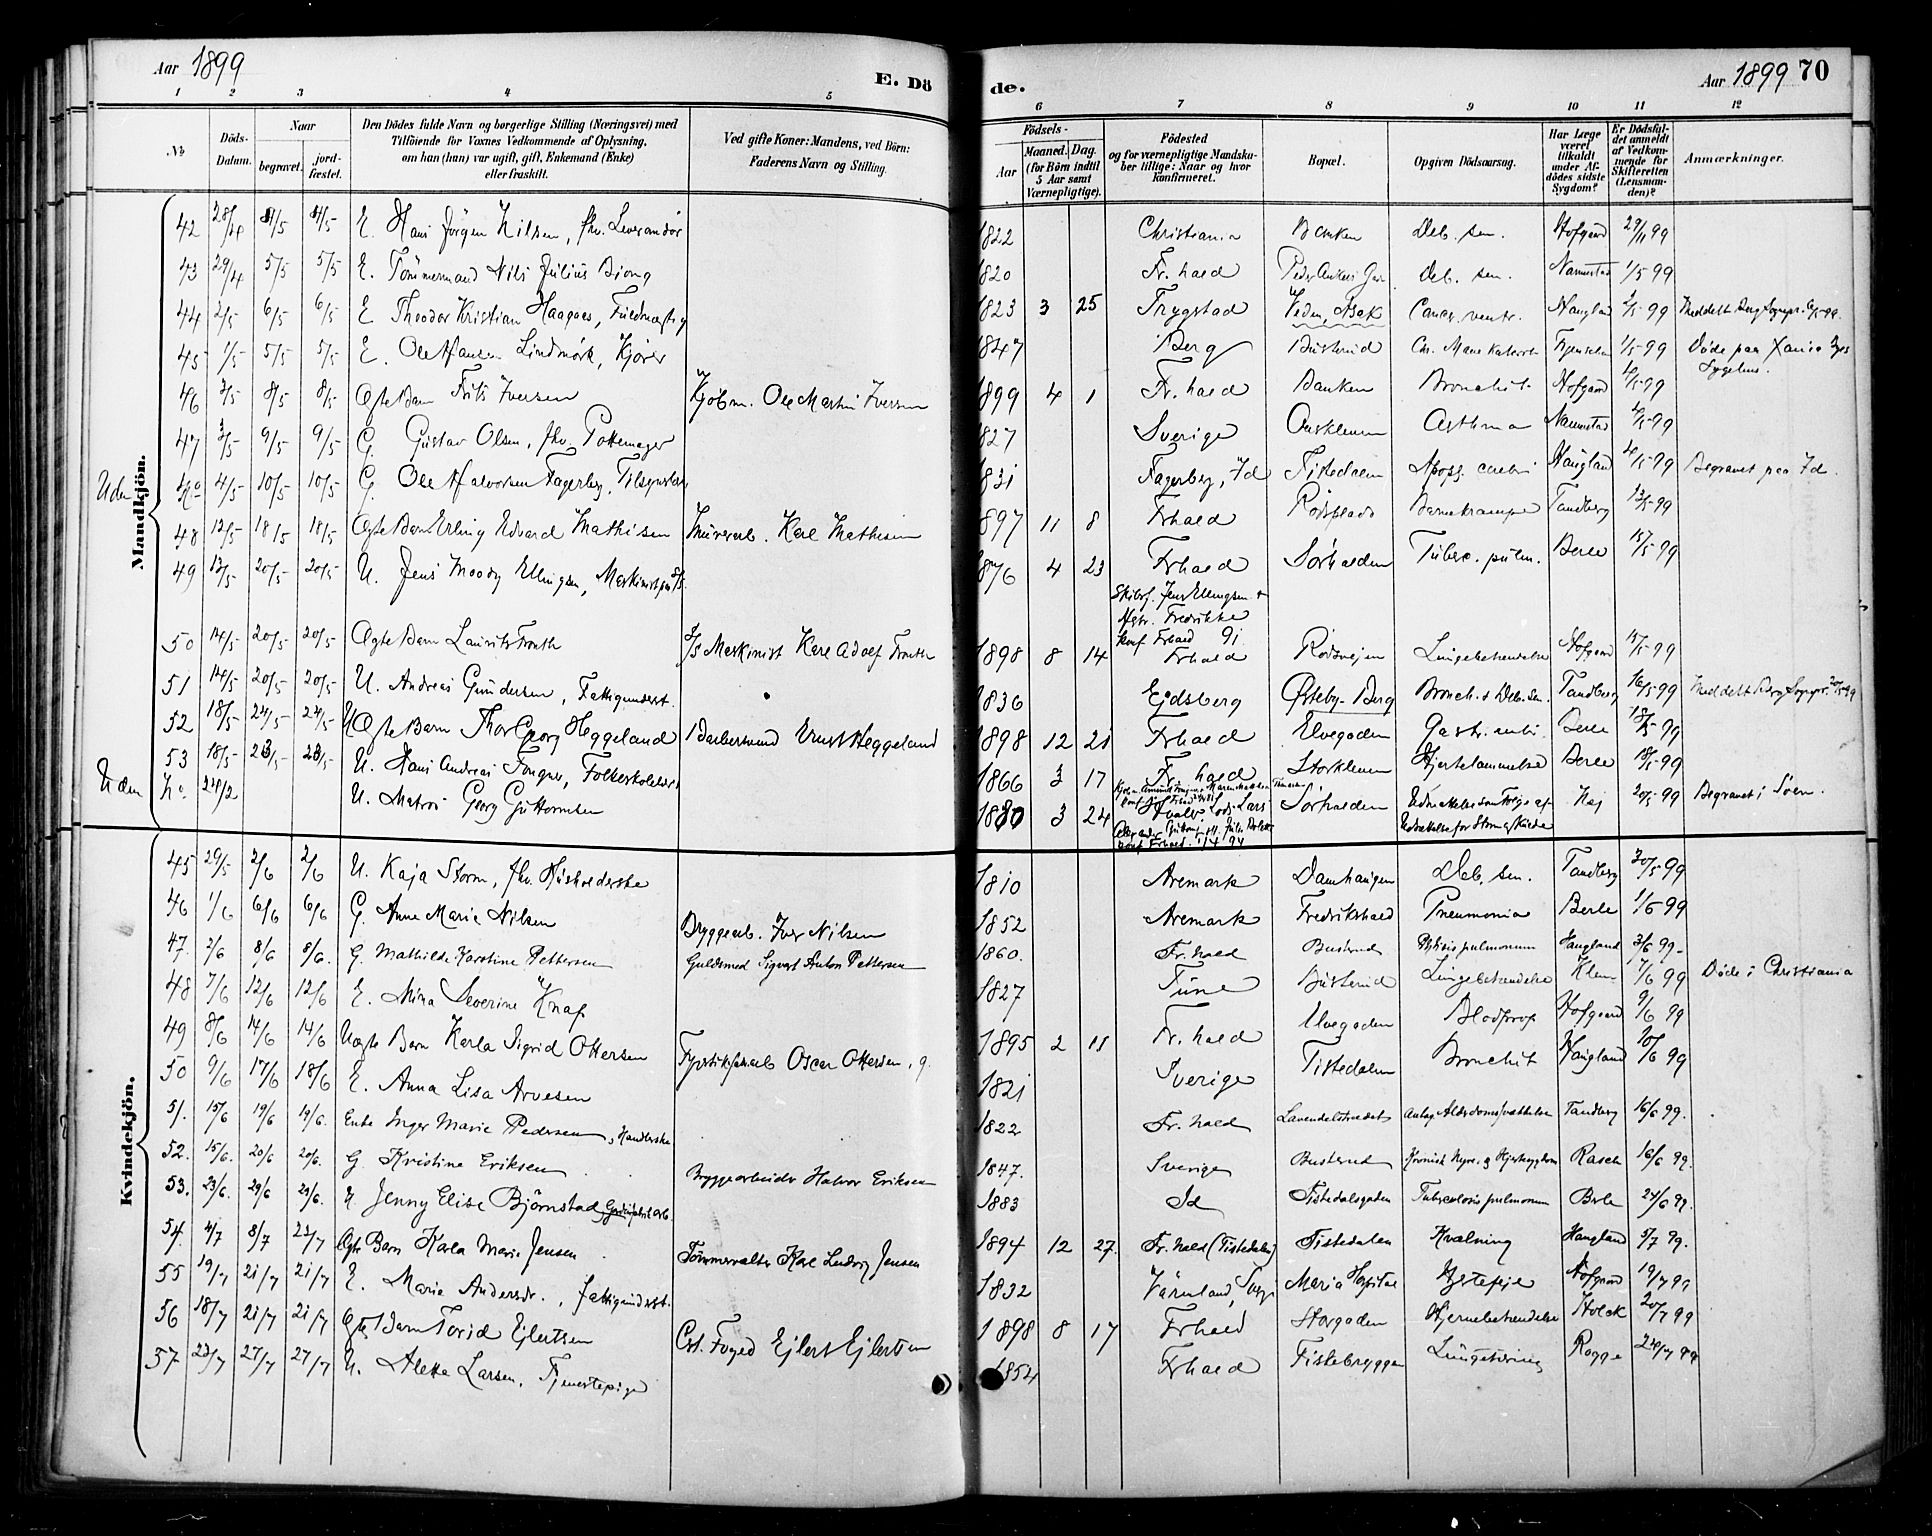 Aar 1899 E. Dö
de. Aar 1899 70
1 2 3 4 5 6 7 8 9 10 11 12
No Döds-Datum. Naar begravet. jord-fæstet. Den Dödes fulde Navn og borgerlige Stilling (Næringsvei) med Tilföiende for Voxnes Vedkommende af Oplysning, om han (hun) var ugift, gift, Enkemand (Enke) eller fraskilt. Ved gifte Koner: Mandens, ved Börn: Faderens Navn og Stilling.
Födsels- Aar Maaned. Dag. (for Börn indtil 5 Aar samt Værnepligtige). Födested og for værnepligtige Mandska-ber tillige: Naar og hvor konfirmeret. Bopæl. Opgiven Dödsaarsag. Har Læge været tilkaldt under Af-dödes sidste Sygdom? Er Dödsfal-det anmeldt af Vedkom-mende for Skifteretten (Lensman-den)? Anmærkninger.
Mandkjön.
42 28/4 4/5 4/5 E. Hans Jörgen Nilsen, fhv. Leverandör 1822 Christiania Banken Deb. sen. Hofgaard 99
43 29/4 5/5 5/5 E. Tömmermand Nils Julius Biong 1820 Fr.hald Deb. sen. Nannestad 1/5 99
44 2/5 6/5 6/5 E Theodor Kristian Haagaas 1823 3 25 Trygstad Veden, Asak Cancer ventr. Haugland 2/5 99
45 1/5 5/5 5/5 E. Ole Hansen Lindmörk, Kjörer 1847 Berg Busterud 1/5 99 Döde paa Sygehus.
46 3/5 8/5 8/5 Ægte Barn Frits Iversen Kjöbm. Ole Martin Iversen 1899 4 1 Fr.hald Banken Bronchit Hofgaard 4/5 99
47 3/5 9/5 9/5 G. Gustav Olsen, fhv. Pottemager 1827 Sverige Asthma Nannestad 4/5 99
Uden No 4/5 10/5 10/5 G. Ole Halvorsen Fagerberg 1831 Fagerberg, Id Tistedalen Apopl. cerebri Haugland 4/5 99 Begravet paa Id.
48 12/5 18/5 18/5 Ægte Barn Erling Edvard Mathisen Murerarb. Karl Mathisen 1897 11 8 Frhald Rödsplads Barnekrampe Tandberg 13/5 99
49 13/5 20/5 20/5 U. Jens Moody Ellingsen 1876 4 23 Frhald Sörhalden Tuberc. pulm. Berle 15/5 99
Skibsf. Jens Ellingsen & Fredrikke
Konf. Frhald 91
50 14/5 20/5 20/5 Ægte Barn Laurits Fronth Maskinist Karl Adolf Fronth 1898 8 14 Frhald Rödsveien Lungebetændelse Hofgaard 15/5 99
51 14/5 20/5 20/5 U. Andreas Gundersen, Fattigunderst. 1836 Eidsberg Østeby-Berg Bronch. & Deb. sen. Tandberg 16/5 99
52 18/5 24/5 24/5 Ægte Barn Thor Georg Heggeland Barbersvend Heggeland 1898 12 21 Frhald Elvegaden Berle 18/5 99
53 18/5 23/5 23/5 U. Hans Andreas 1866 3 17 Fr.hald Storkleven Hjertelammelse Berle 18/5 99
Uden No 24/2 U. Matros Georg Guttormsen 1880 3 24 Sörhalden Nej 20/5 99 Begravet i Söen.
Konf. Frhald 1/4 94
Kvindekjön.
45 29/5 2/6 2/6 U. Kaja Storm, fhv. Husholderske 1810 Aremark Damhaugen Deb. sen. Tandberg 30/5 99
46 1/6 6/6 6/6 G. Anne Marie Nilsen Bryggearb. Iver Nilsen 1852 Aremark Fredrikshald Pneumonia Berle 1/6 99
47. 2/6 8/6 8/6. G. Mathilde Karoline Pettersen Guldsmed Sigvart Anton Pettersen 1860. Fr.hald Busterud Phtisis pulmonum Haugland 3/6 99.
48 7/6 12/6 12/6 E. Mina Severine Knap 1827 Tune Busterud Lungebetændelse 7/6 99 Döde i Christiania
49 8/6 14/6 14/6 Uægte Barn Karla Sigrid Ottersen Fyrstikfabarb Oscar Ottersen, g. 1895 2 11 Fr.hald Elvegaden Blodprop Hofgaard 9/6 99
50 9/6 17/6 18/6 E. Anna Lisa Arvesen 1821 Sverige Tistedalen Bronchit Haugland 10/6 99
51. 15/6 19/6 19/6. Enke Inger Marie Pedersen, Handlerske 1822 Fr.hald Lavendelstrædet Tandberg 16/6 99.
52. 15/6. 20/6 20/6. G. Kristine Eriksen Bryggearbeider Halvor Eriksen 1847. Sverige Busterud Kronisk Nyre- og Hjertesygdom Rasch 16/6 99.
53. 23/6. 29/6 29/6. U. Jenny Elise Björnstad 1883 Id Tistedalsgaden Tuberculosis pulmonum Berle 24/6 99.
54. 4/7 8/7 22/7 Ægte Barn Karla Marie Jensen Tömmervalter Karl Ludvig Jensen 1894 12 27. Fr.hald (Tistedalen) Tistedalen Kvælning Haugland 5/7 99.
55 19/7 21/7 21/7 E. Marie Andersdr., fattigunderst. 1832 Värmland, Sverge Maria Hospital Hofgaard 19/7 99
56 18/7 21/7 21/7 Ægte Barn Torid Ejlertsen Cst. Foged Ejlert Ejlertsen 1898 8 17 Frhald Storgaden Hjernebetændelse Holck 20/7 99
57 23/7 27/7 27/7 U. Aletta Larsen, Tjenestepige 1852 Frhald Fiskebryggen Rogge 24/7 99